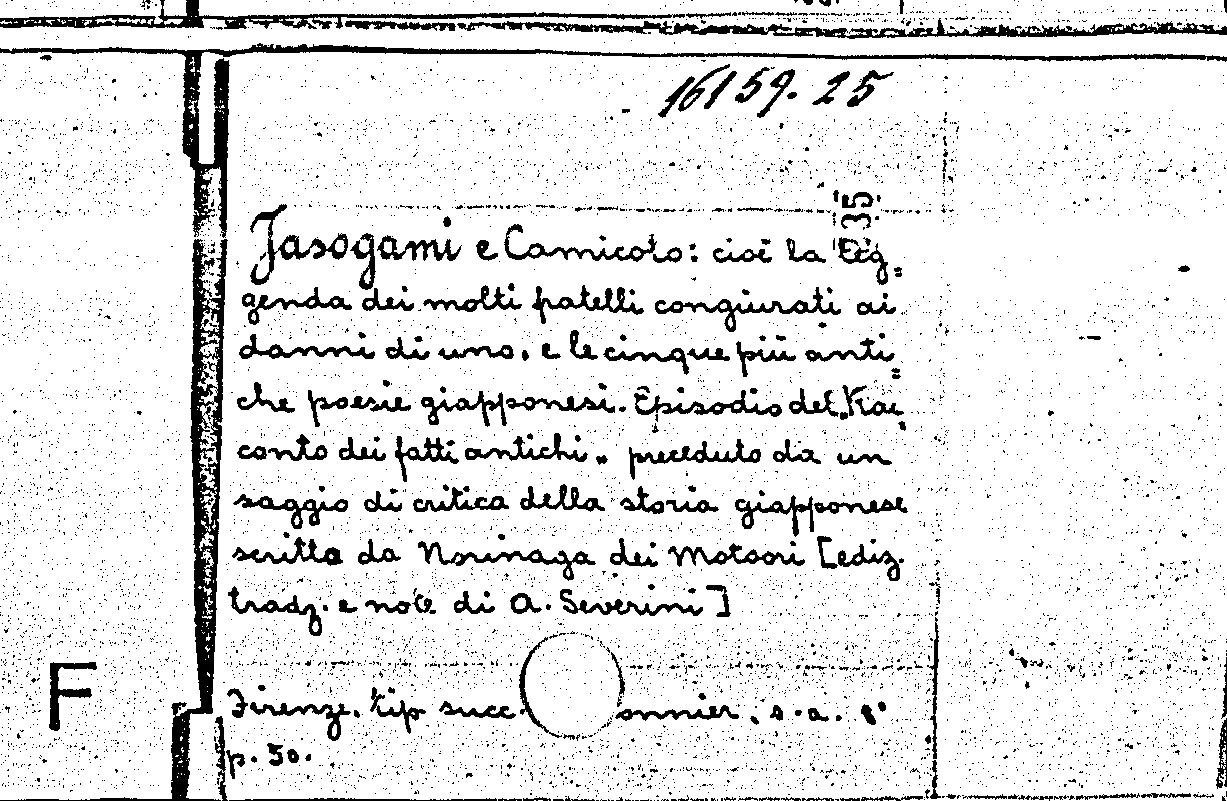 16159.25
35
Jasogami e Camicoto: cioè la leg=
genda dei molti fratelli congiurati ai
danni di uno, e le cinque più anti=
che poesie giapponesi. Episodio del „Rac=
conto dei fatti antichi„ preceduto da un
saggio di critica della storia giapponese
scritto da Norinaga dei Motoori [ediz.
tradz. e note di A. Severini]
F
Firenze, tip succ. onnier, s.a. 8°
p. 50.